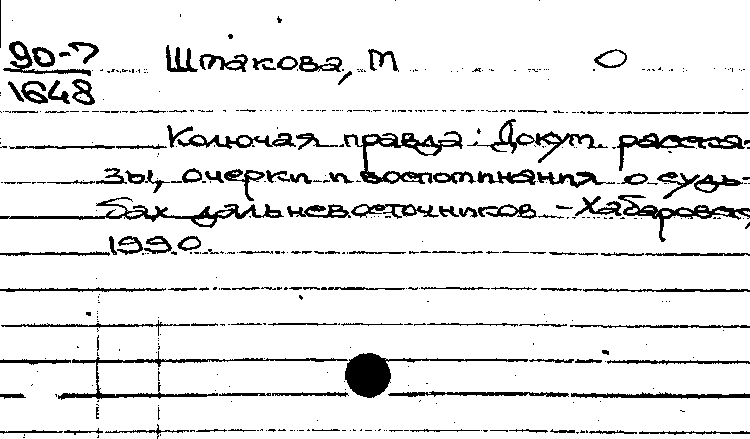 90-7 Штакова, М О
1648
Колючая правда: Докум. расска-
зы, очерки и воспоминания о судь-
бах дальневосточников -Хабаровск,
1990.